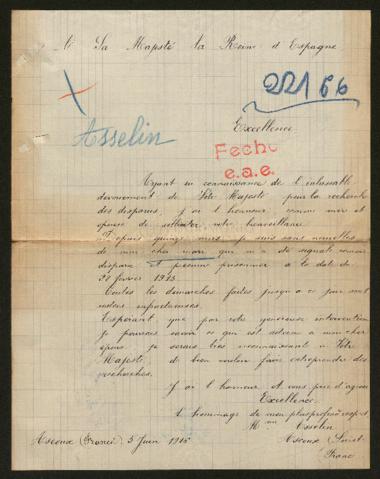 A Sa Majesté la Reine d'Espagne
22166
Asselin
Excellence
Fecho
e.a.e.
Ayant eu connaissance de l'inlassable
dévouement de Votre Majesté pour la recherche
des disparus, j'ai l'honneur comme mère et
épouse de solliciter votre bienveillance.
Depuis quinze mois je suis sans nouvelles
de mon cher mari qui m'a été signalé comme
disparu et présumé prisonnier à la date du
28 février 1915.
Toutes les démarches faites jusqu'à ce jour sont
restées infructueuses.
Espérant que par votre généreuse intervention
je pourrais savoir ce qui est advenu à mon cher
époux je serais très reconnaissante à Votre
Majesté de bien vouloir faire entreprendre des
recherches.
J'ai l'honneur et vous prie d'agréer
Excellence
l'hommage de mon plus profond respect
Mme Asselin
Ascoux (France) 5 Juin 1916
Ascoux Loiret
France